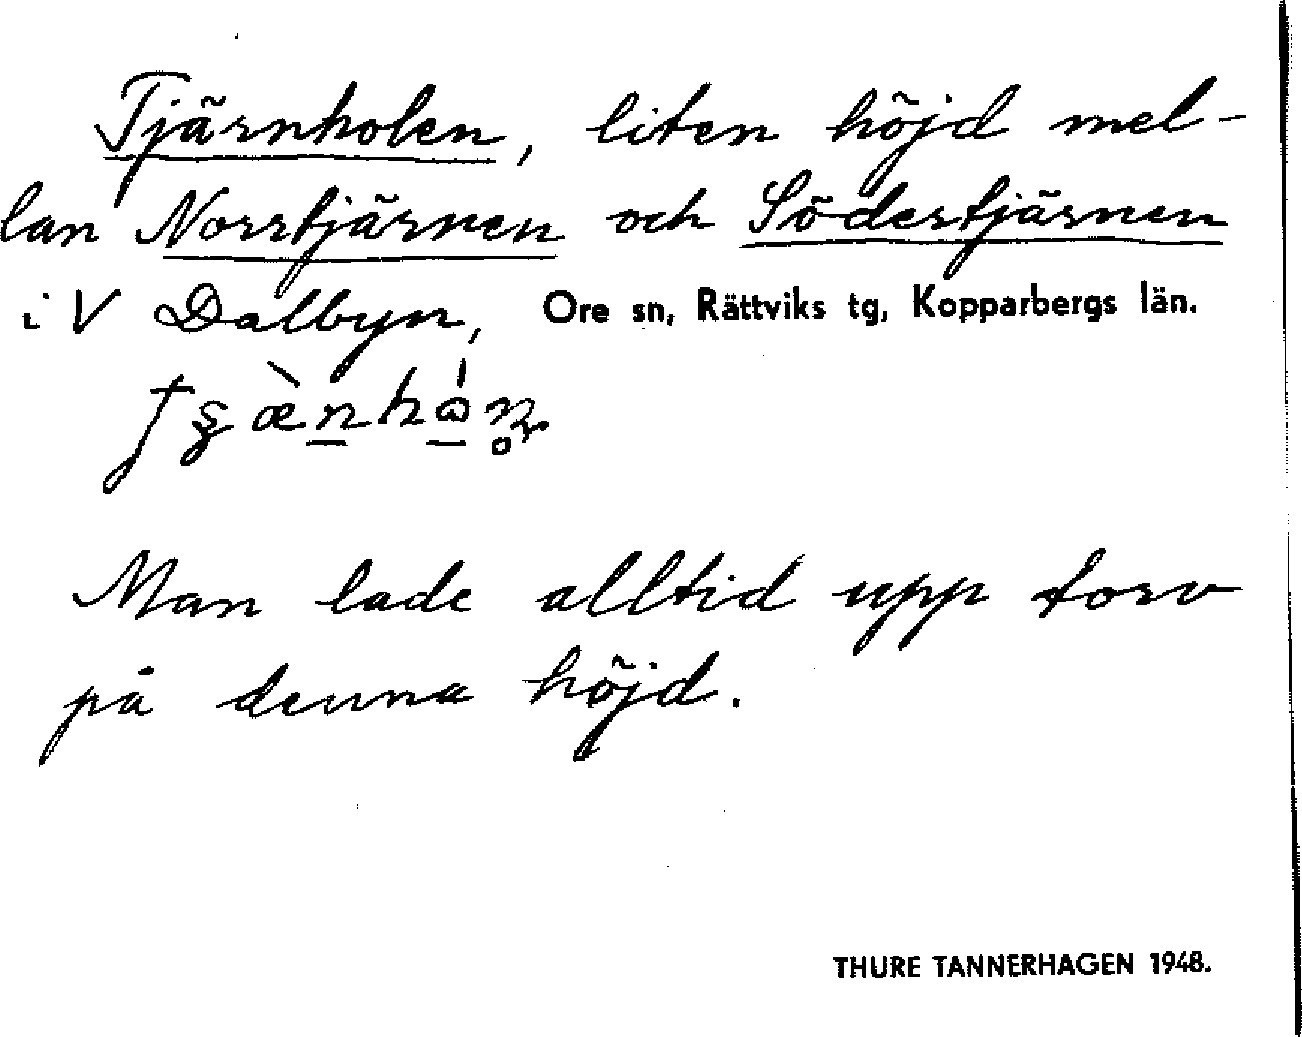 Tjärnholen, liten höjd mel-
lan Norrtjärnen och Södertjärnen
i V Dalbyn, Ore sn, Rättviks tg, Kopparbergs län.
Man lade alltid upp torv
på denna höjd.
THURE TANNERHAGEN 1948.